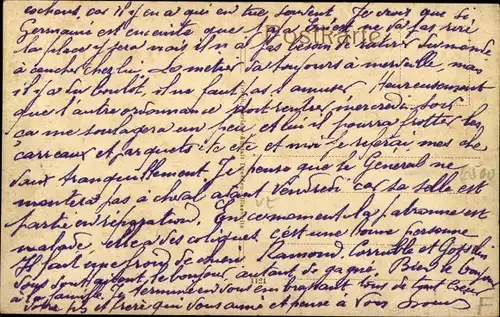 cochons, car il y en a qui en tue souvent. Je crois que si
Germaine est enceinte que ne va pas
la place mais il n'a pas besoin de du monde
à coucher chez lui. Le métier va toujours à merveille, mais
il y a du boulot, il ne faut pas s'amuser. Heureusement
que l'autre ordonnance doit rentrer mercredi soir
ça me soulagera un peu et lui il pourra frotter les
carreaux et parquets et moi je referai mes che
vaux tranquillement. Je pense que le Général ne
montera pas à cheval avant Vendredi car sa selle est
partie en réparation. En ce moment la patronne est
malade, elle a des coliques, c'est une bonne personne
Il fait une froid de Ramond, et
vous dont le bonjour autant de gagné. Bien le bonjour
à la famille. Je termine en vous embrassant tous de tout cœur
Votre fils et frère qui vous aime et pense à vous
Postkarte
1121